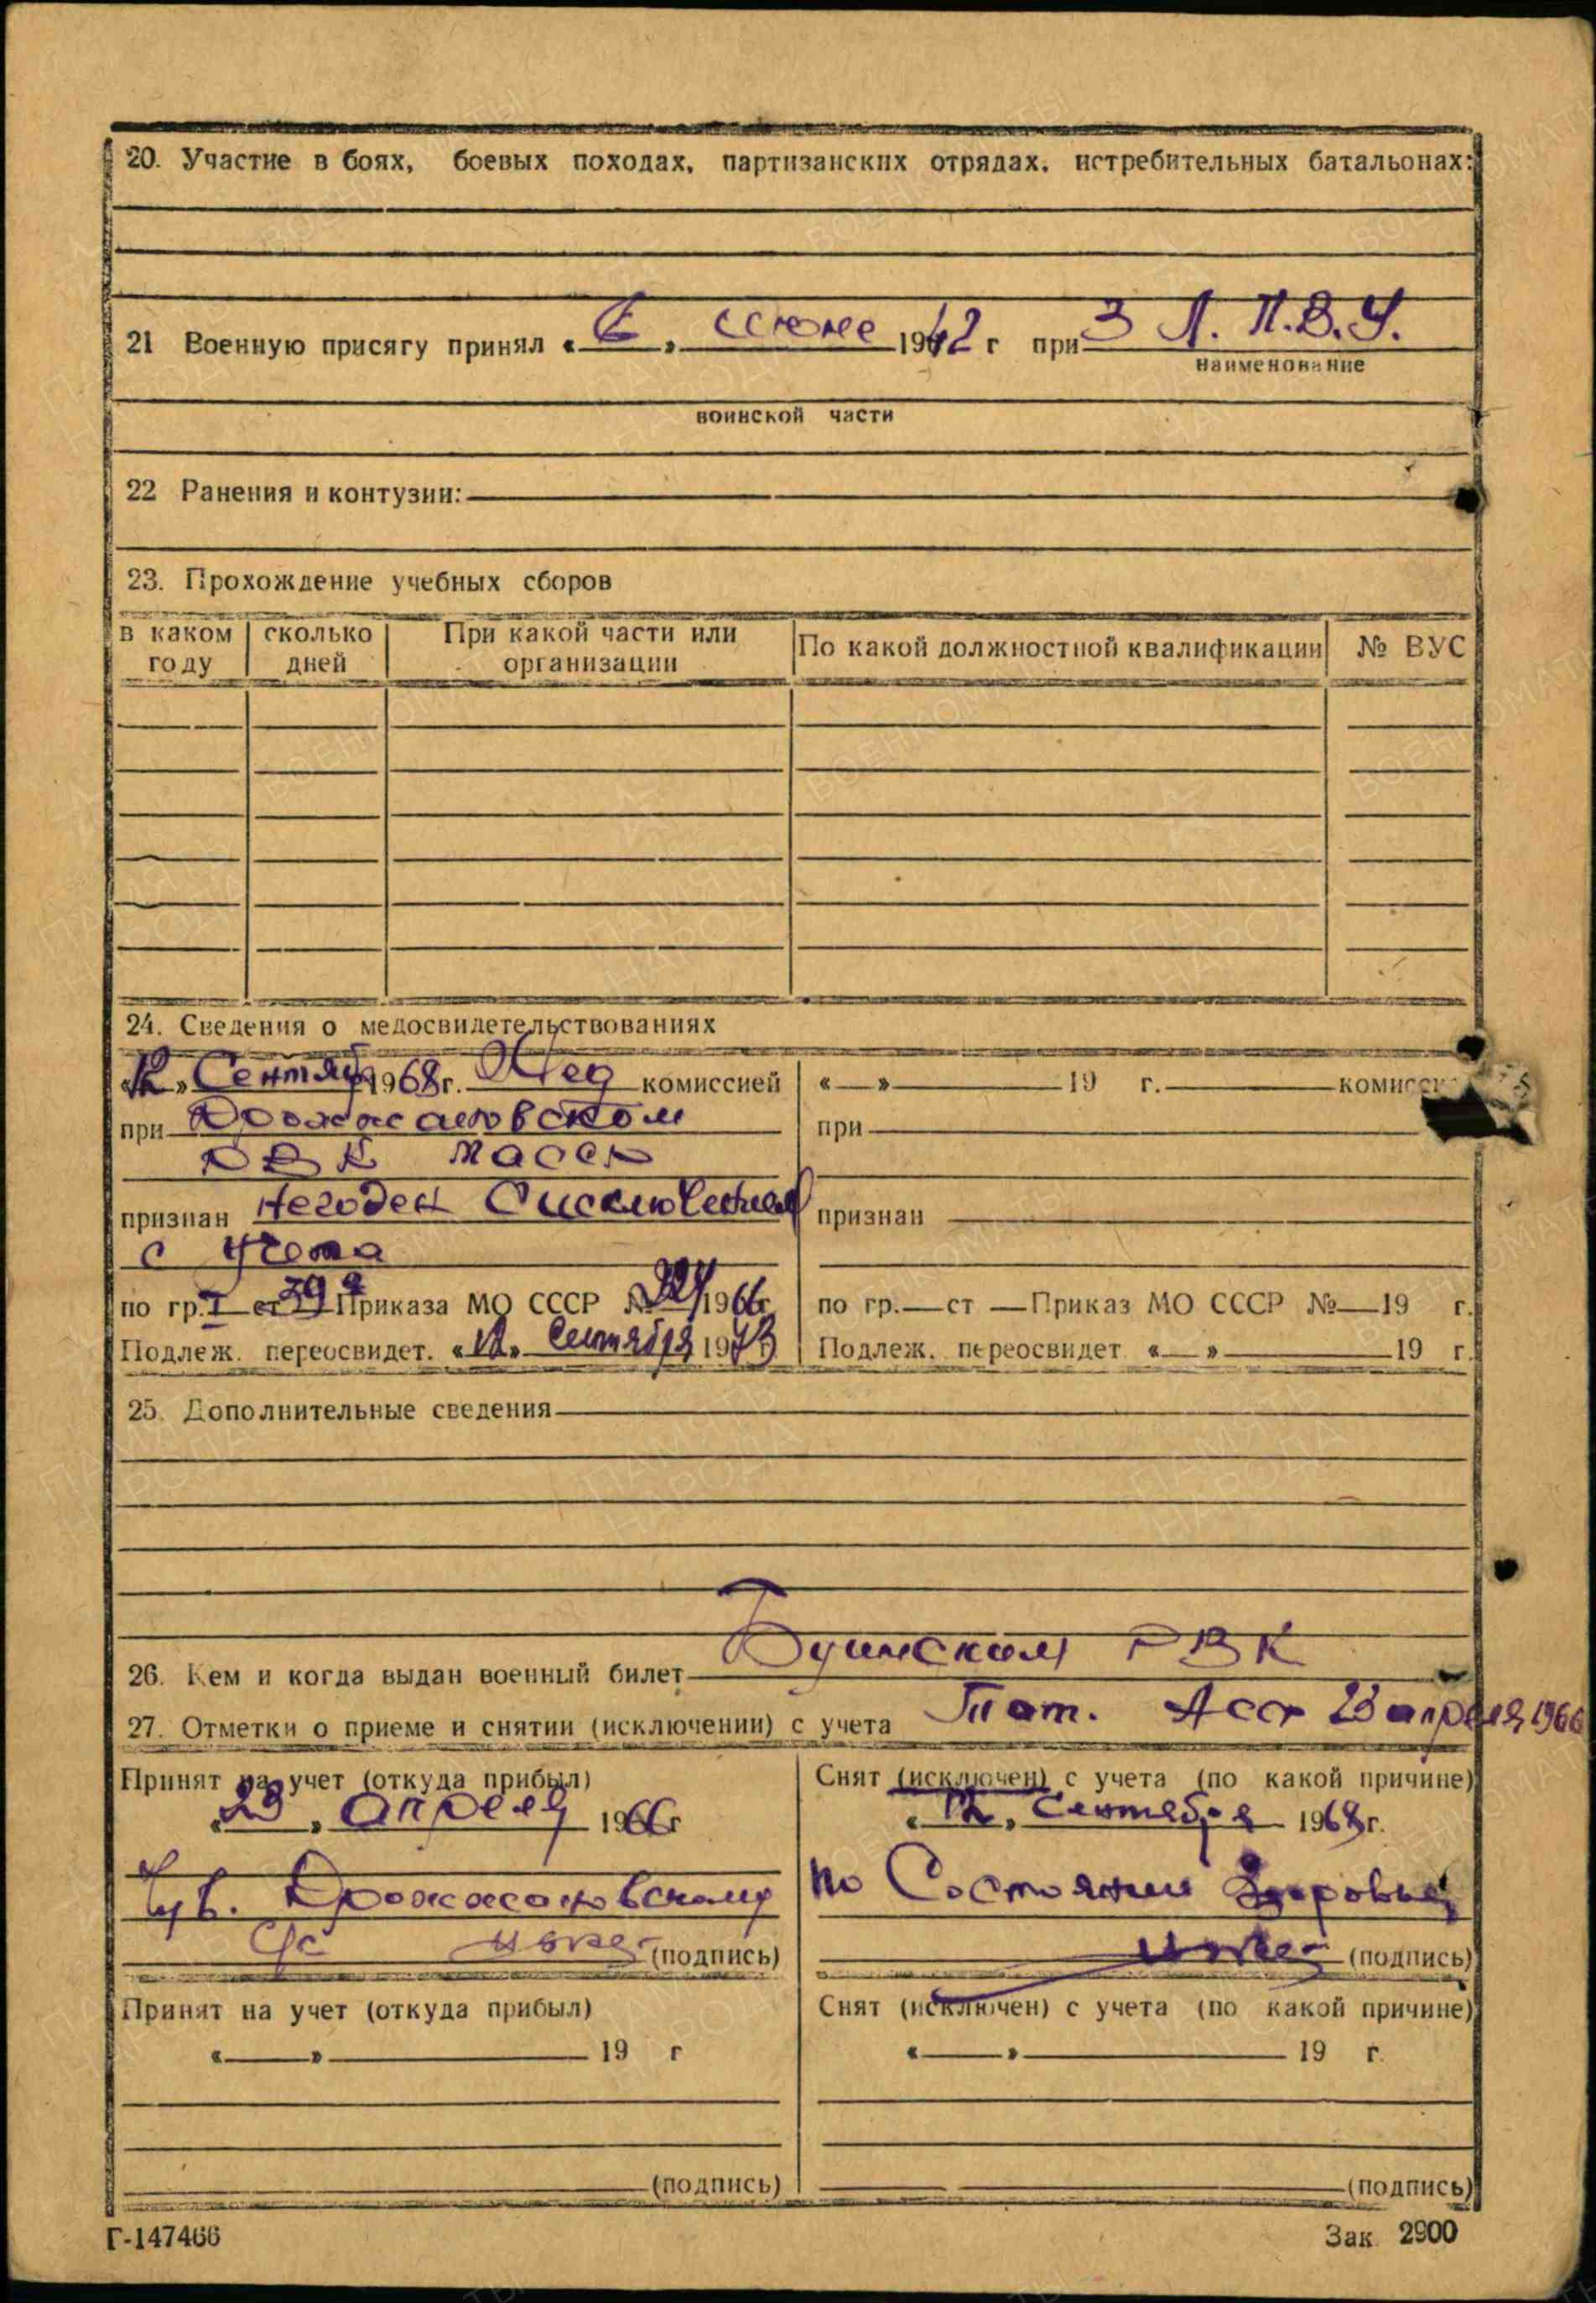 20. Участие в боях, боевых походах, партизанских отрядах, истребительных батальонах:
21 Военную присягу принял «6» июне 1942 г при 3 Л. П. В. У.
наименование
воинской части
22 Ранения и контузии:
23. Прохождение учебных сборов
в каком году | сколько дней | При какой части или организации | По какой должностной квалификации | № ВУС
24. Сведения о медосвидетельствованиях
«12» Сентяб 1968 г. Мед комиссией
при Дрожжановском
РВК ТАССР
признан Негоден с исключением
с учета
по гр. I ст 39 Приказа МО СССР № 1966 г.
Подлеж. переосвидет. «12» Сентября 1973
« » 19 г. комисси
при
признан
по гр. ст Приказ МО СССР № 19 г.
Подлеж. переосвидет « » 19 г.
25. Дополнительные сведения
26. Кем и когда выдан военный билет Буинским РВК
Тат. Асср 23 апреля 1966
27. Отметки о приеме и снятии (исключении) с учета
Принят на учет (откуда прибыл)
«23» апреля 1966 г
Чув. Дрожжановскому
с/с (подпись)
Снят (исключен) с учета (по какой причине)
«12» Сентября 1968 г.
по Состоянии Здоровья
(подпись)
Принят на учет (откуда прибыл)
« » 19 г
(подпись)
Снят (исключен) с учета (по какой причине)
« » 19 г.
(подпись)
Г-147466
Зак. 2900